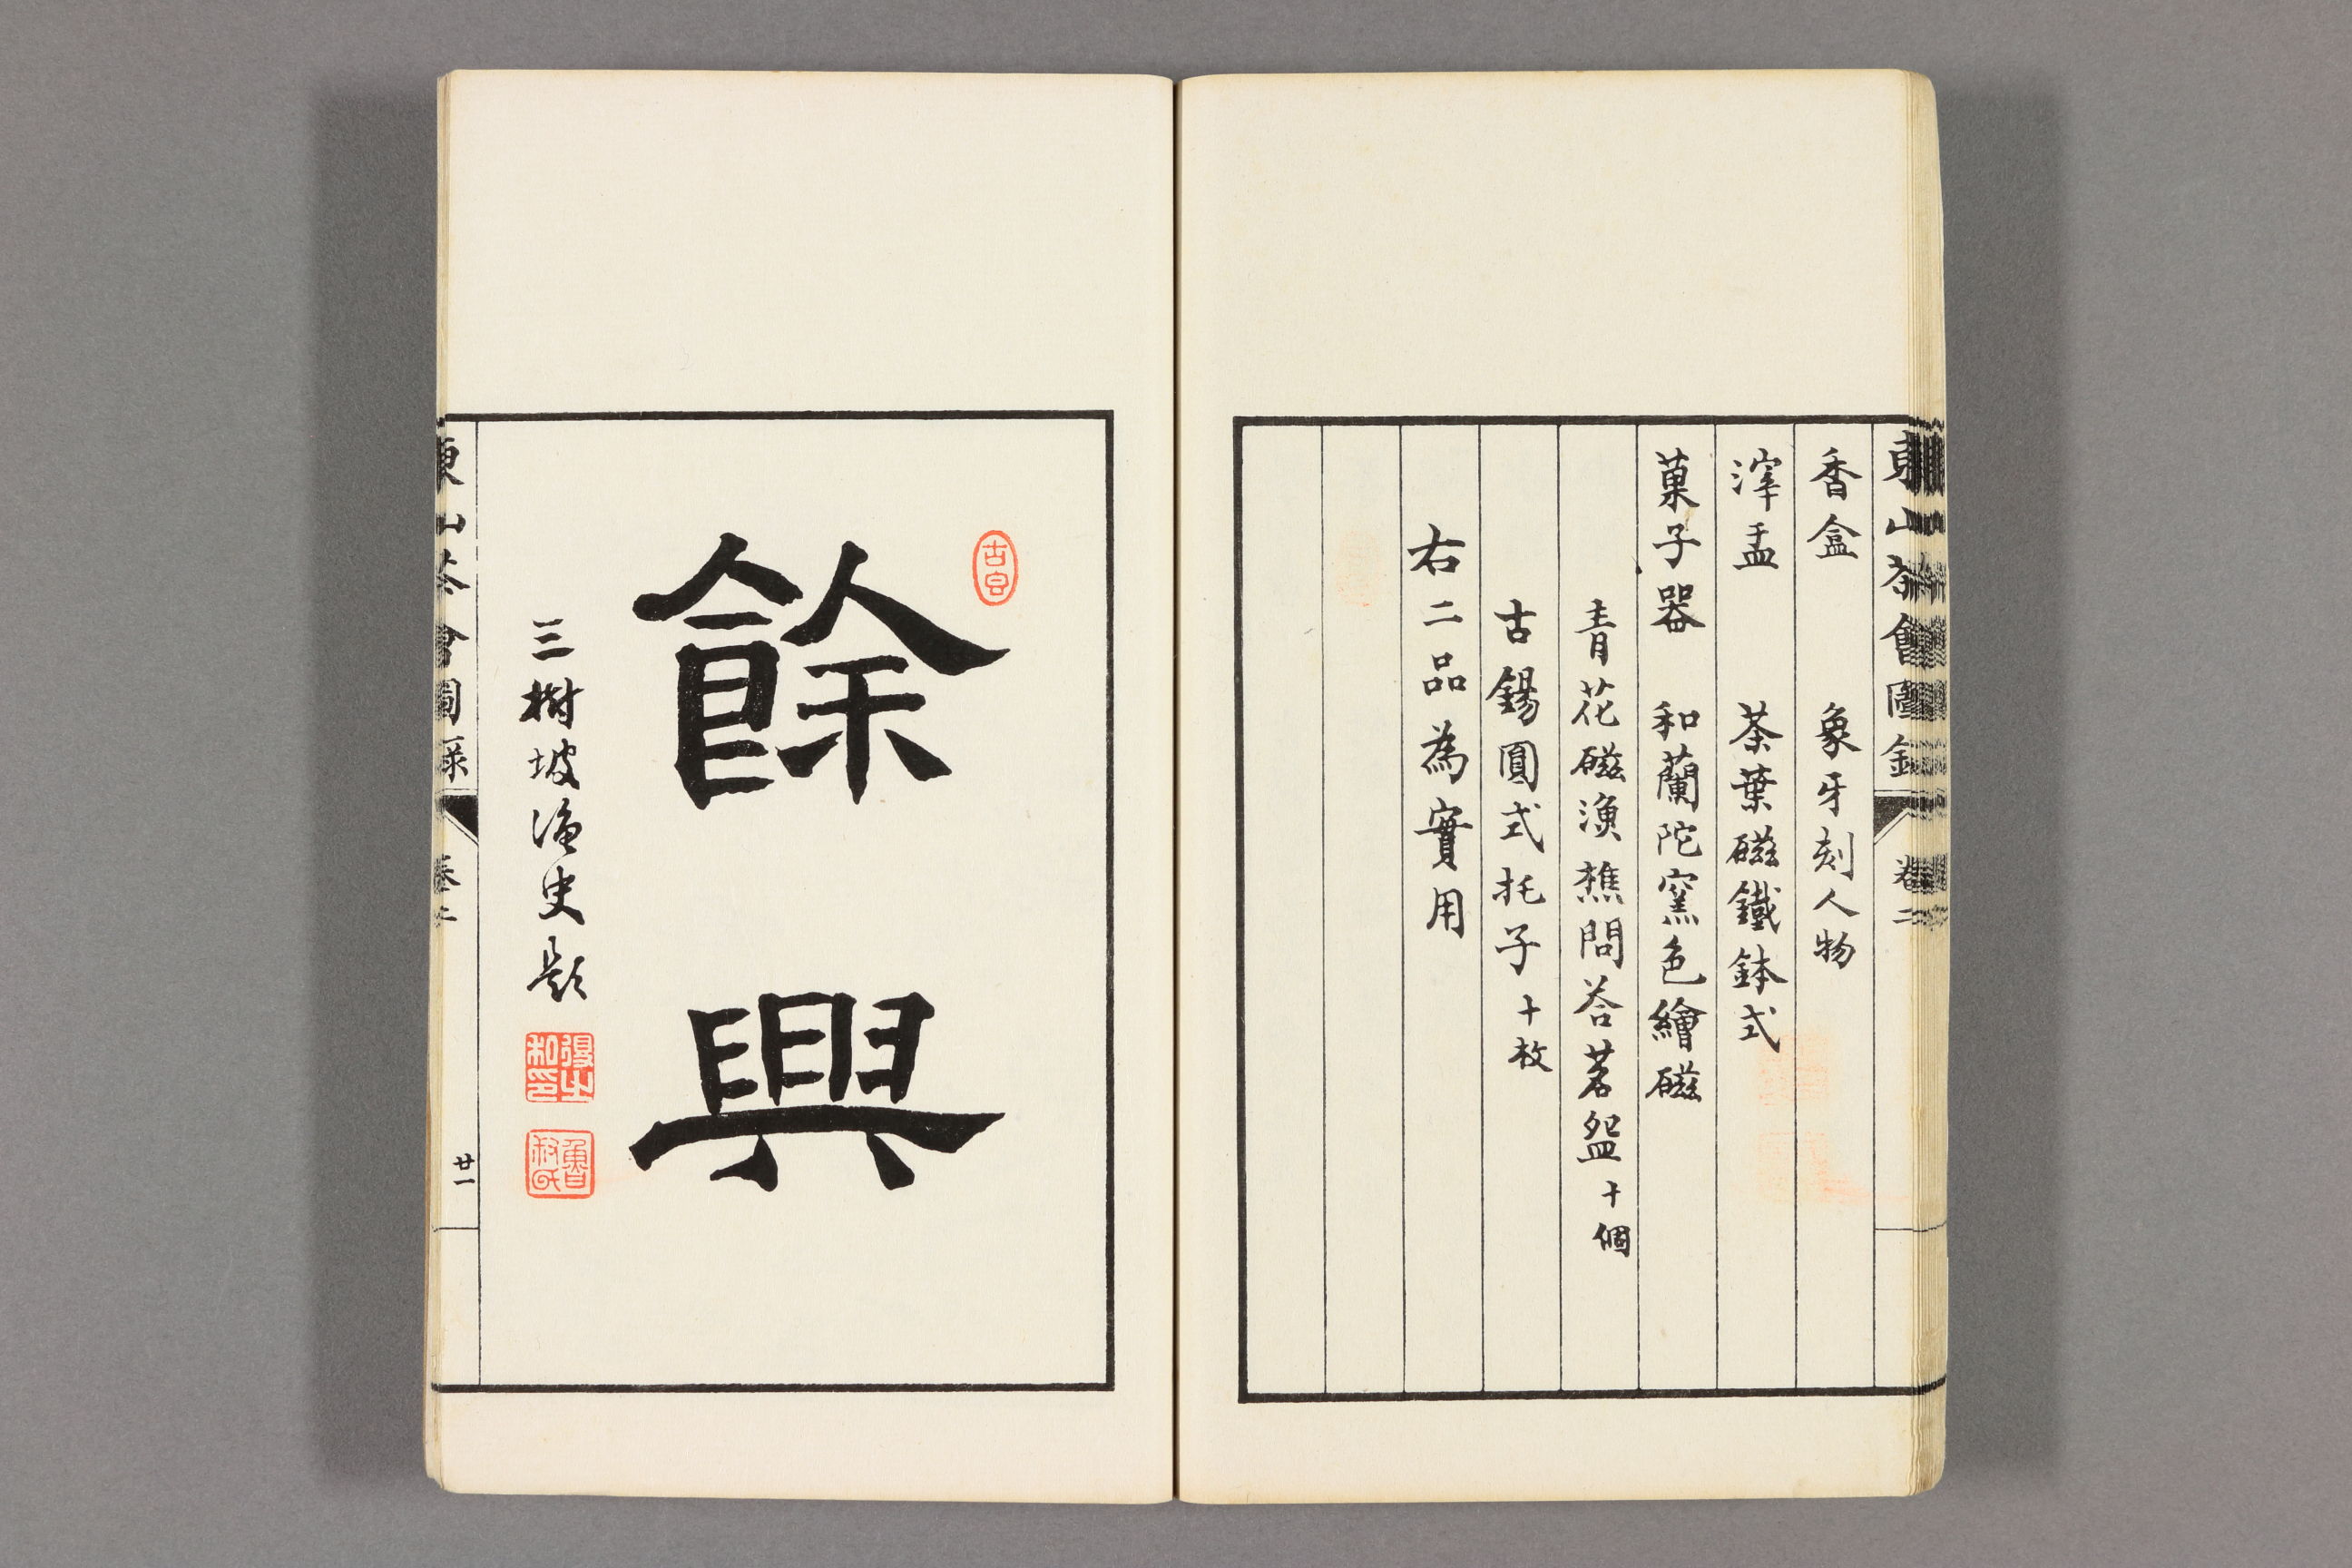 東山茶會圖錄
卷二
香盒　象牙刻人物
滓盂　茶葉磁鐵鉢式
菓子器　和蘭陀窯色繪磁
青花磁漁樵問荅茗盌十個
古錫圓式托子十枚
右二品為實用
餘興
三樹坡漁史題
東山茶會圖録
卷二
廿一